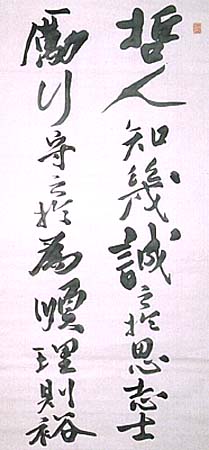 哲人知幾誠之於思志士
勵行守之於為順理則裕